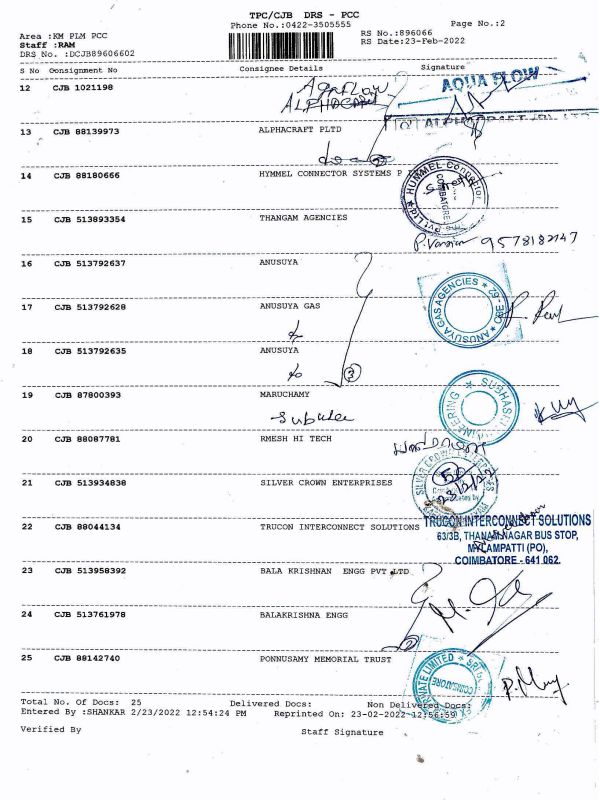 TPC/CJB DRS - PCC
Phone No.:0422-3505555 Page No.:2
Area :KM PLM PCC RS No.:896066
Staff :RAM RS Date:23-Feb-2022
DRS No. :DCJB89606602
S No Consignment No Consignee Details Signature
12 CJB 1021198 AQUA FLOW
ALPHACRAFT
13 CJB 88139973 ALPHACRAFT PLTD
14 CJB 88180666 HYMMEL CONNECTOR SYSTEMS P
HUMMEL Connector
COIMBATORE
15 CJB 513893354 THANGAM AGENCIES
9578182747
16 CJB 513792637 ANUSUYA
17 CJB 513792628 ANUSUYA GAS
ANUSUYA GAS AGENCIES * CBE-62 *
18 CJB 513792635 ANUSUYA
3
19 CJB 87800393 MARUCHAMY
SUBHASHRI
20 CJB 88087781 RMESH HI TECH
21 CJB 513934838 SILVER CROWN ENTERPRISES
23/2/22
22 CJB 88044134 TRUCON INTERCONNECT SOLUTIONS
TRUCON INTERCONNECT SOLUTIONS
63/3B, THANAM NAGAR BUS STOP,
MYLAMPATTI (PO),
COIMBATORE - 641 062.
23 CJB 513958392 BALA KRISHNAN ENGG PVT LTD
24 CJB 513761978 BALAKRISHNA ENGG
25 CJB 88142740 PONNUSAMY MEMORIAL TRUST
COIMBATORE
Total No. Of Docs: 25 Delivered Docs: Non Delivered Docs:
Entered By :SHANKAR 2/23/2022 12:54:24 PM Reprinted On: 23-02-2022 12:56:59
Verified By Staff Signature